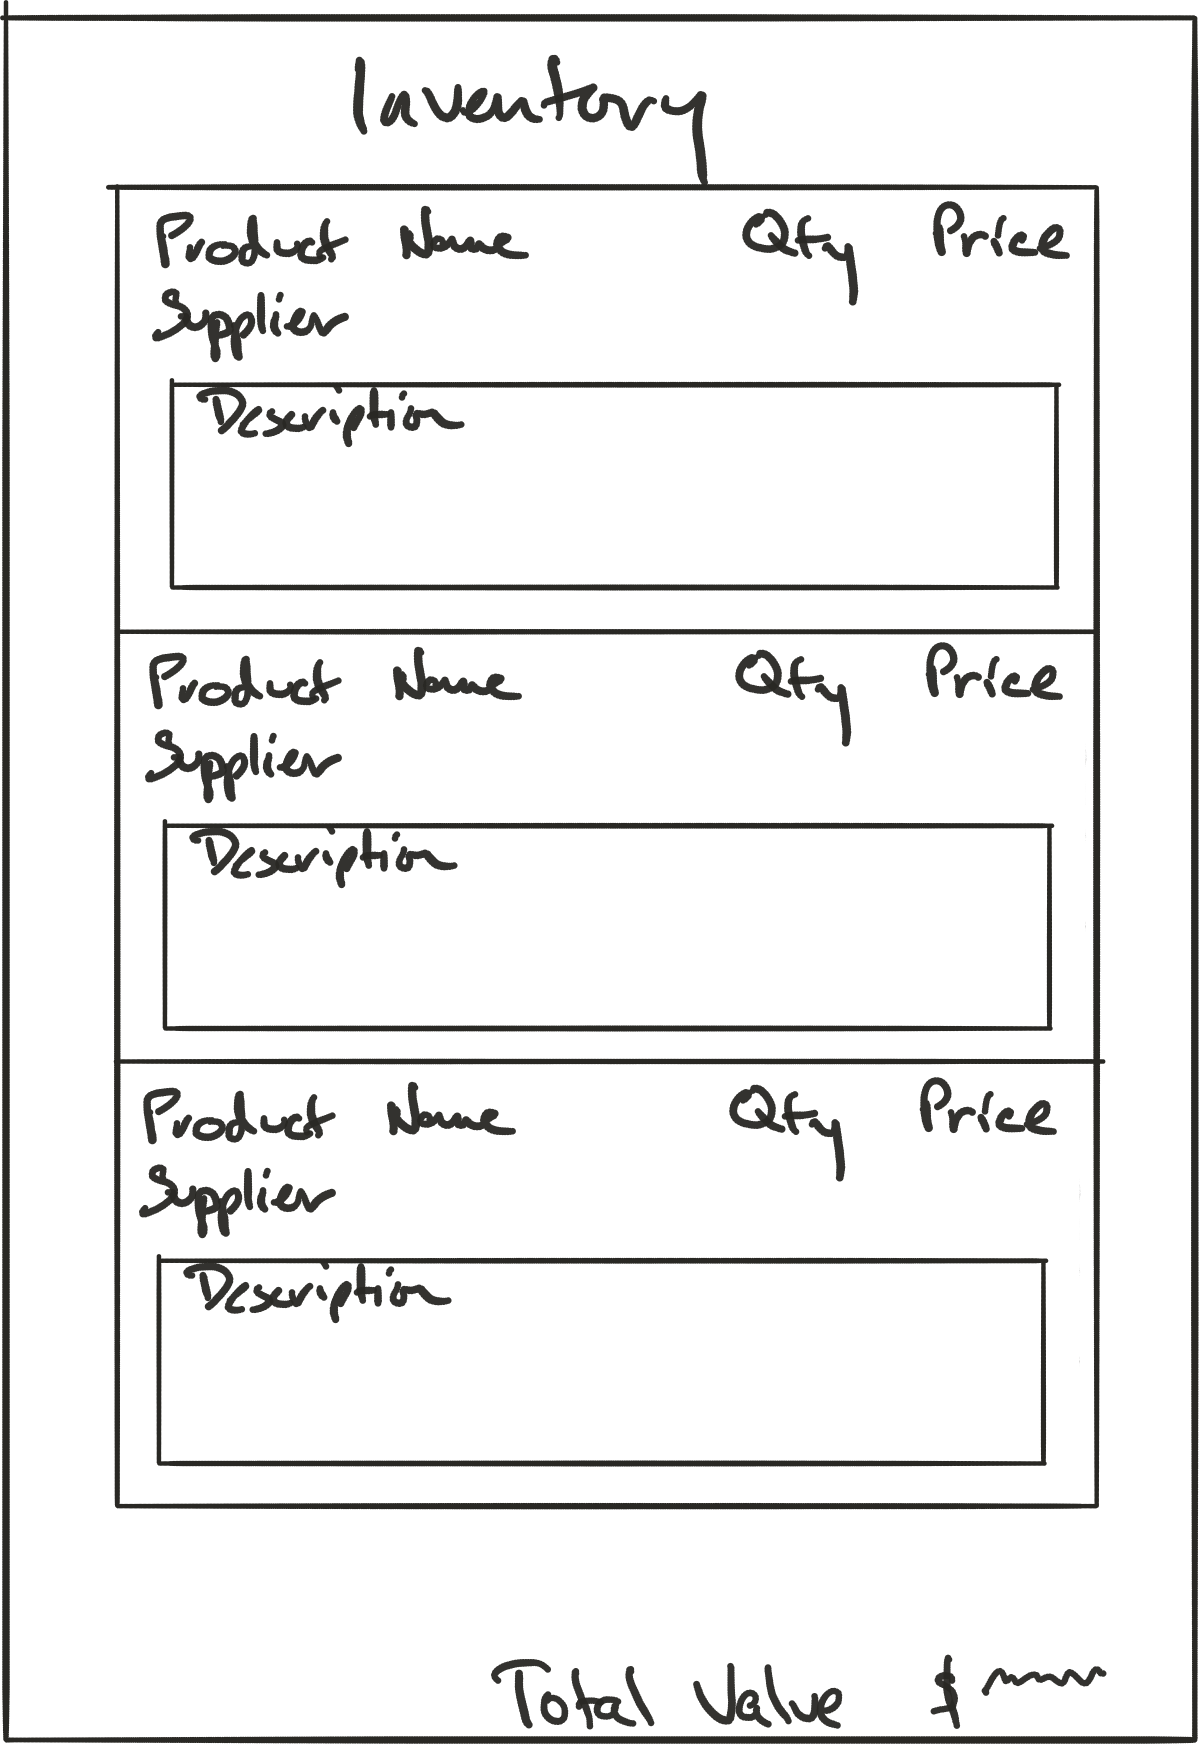 Inventory
Product Name Qty Price
Supplier
Description
Product Name Qty Price
Supplier
Description
Product Name Qty Price
Supplier
Description
Total Value $